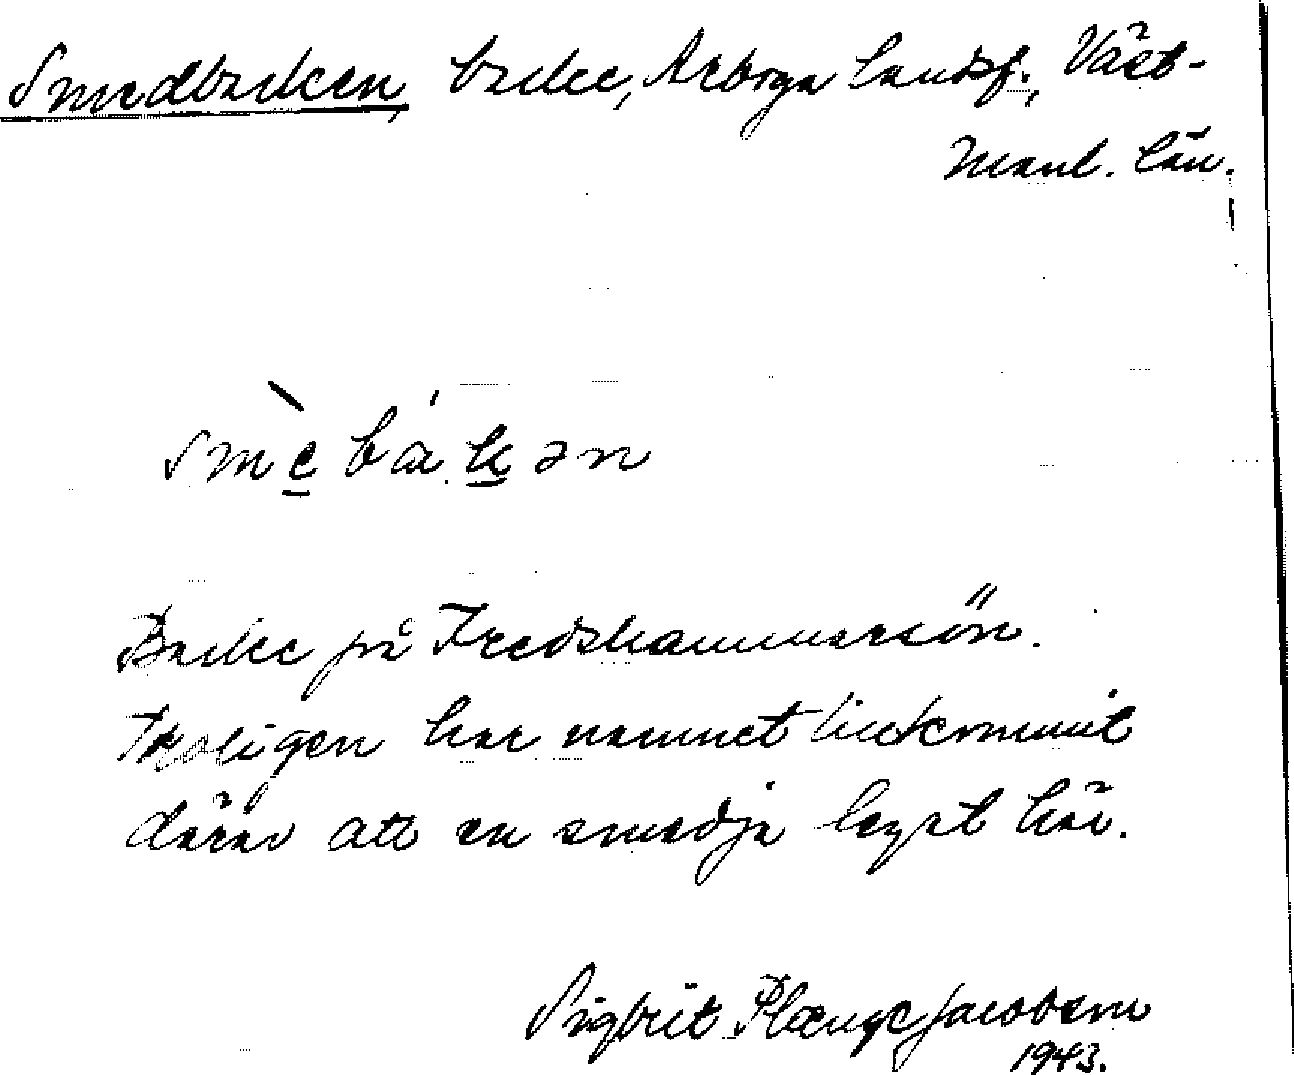 Smedbacken, backe, Arboga landsf., Väst-
manl. län.
smèbákən
Backe på Fredshammarsön.
Troligen har namnet tillkommit
därav att en smedja legat här.
Sigbrit Plænge Jacobson
1943.